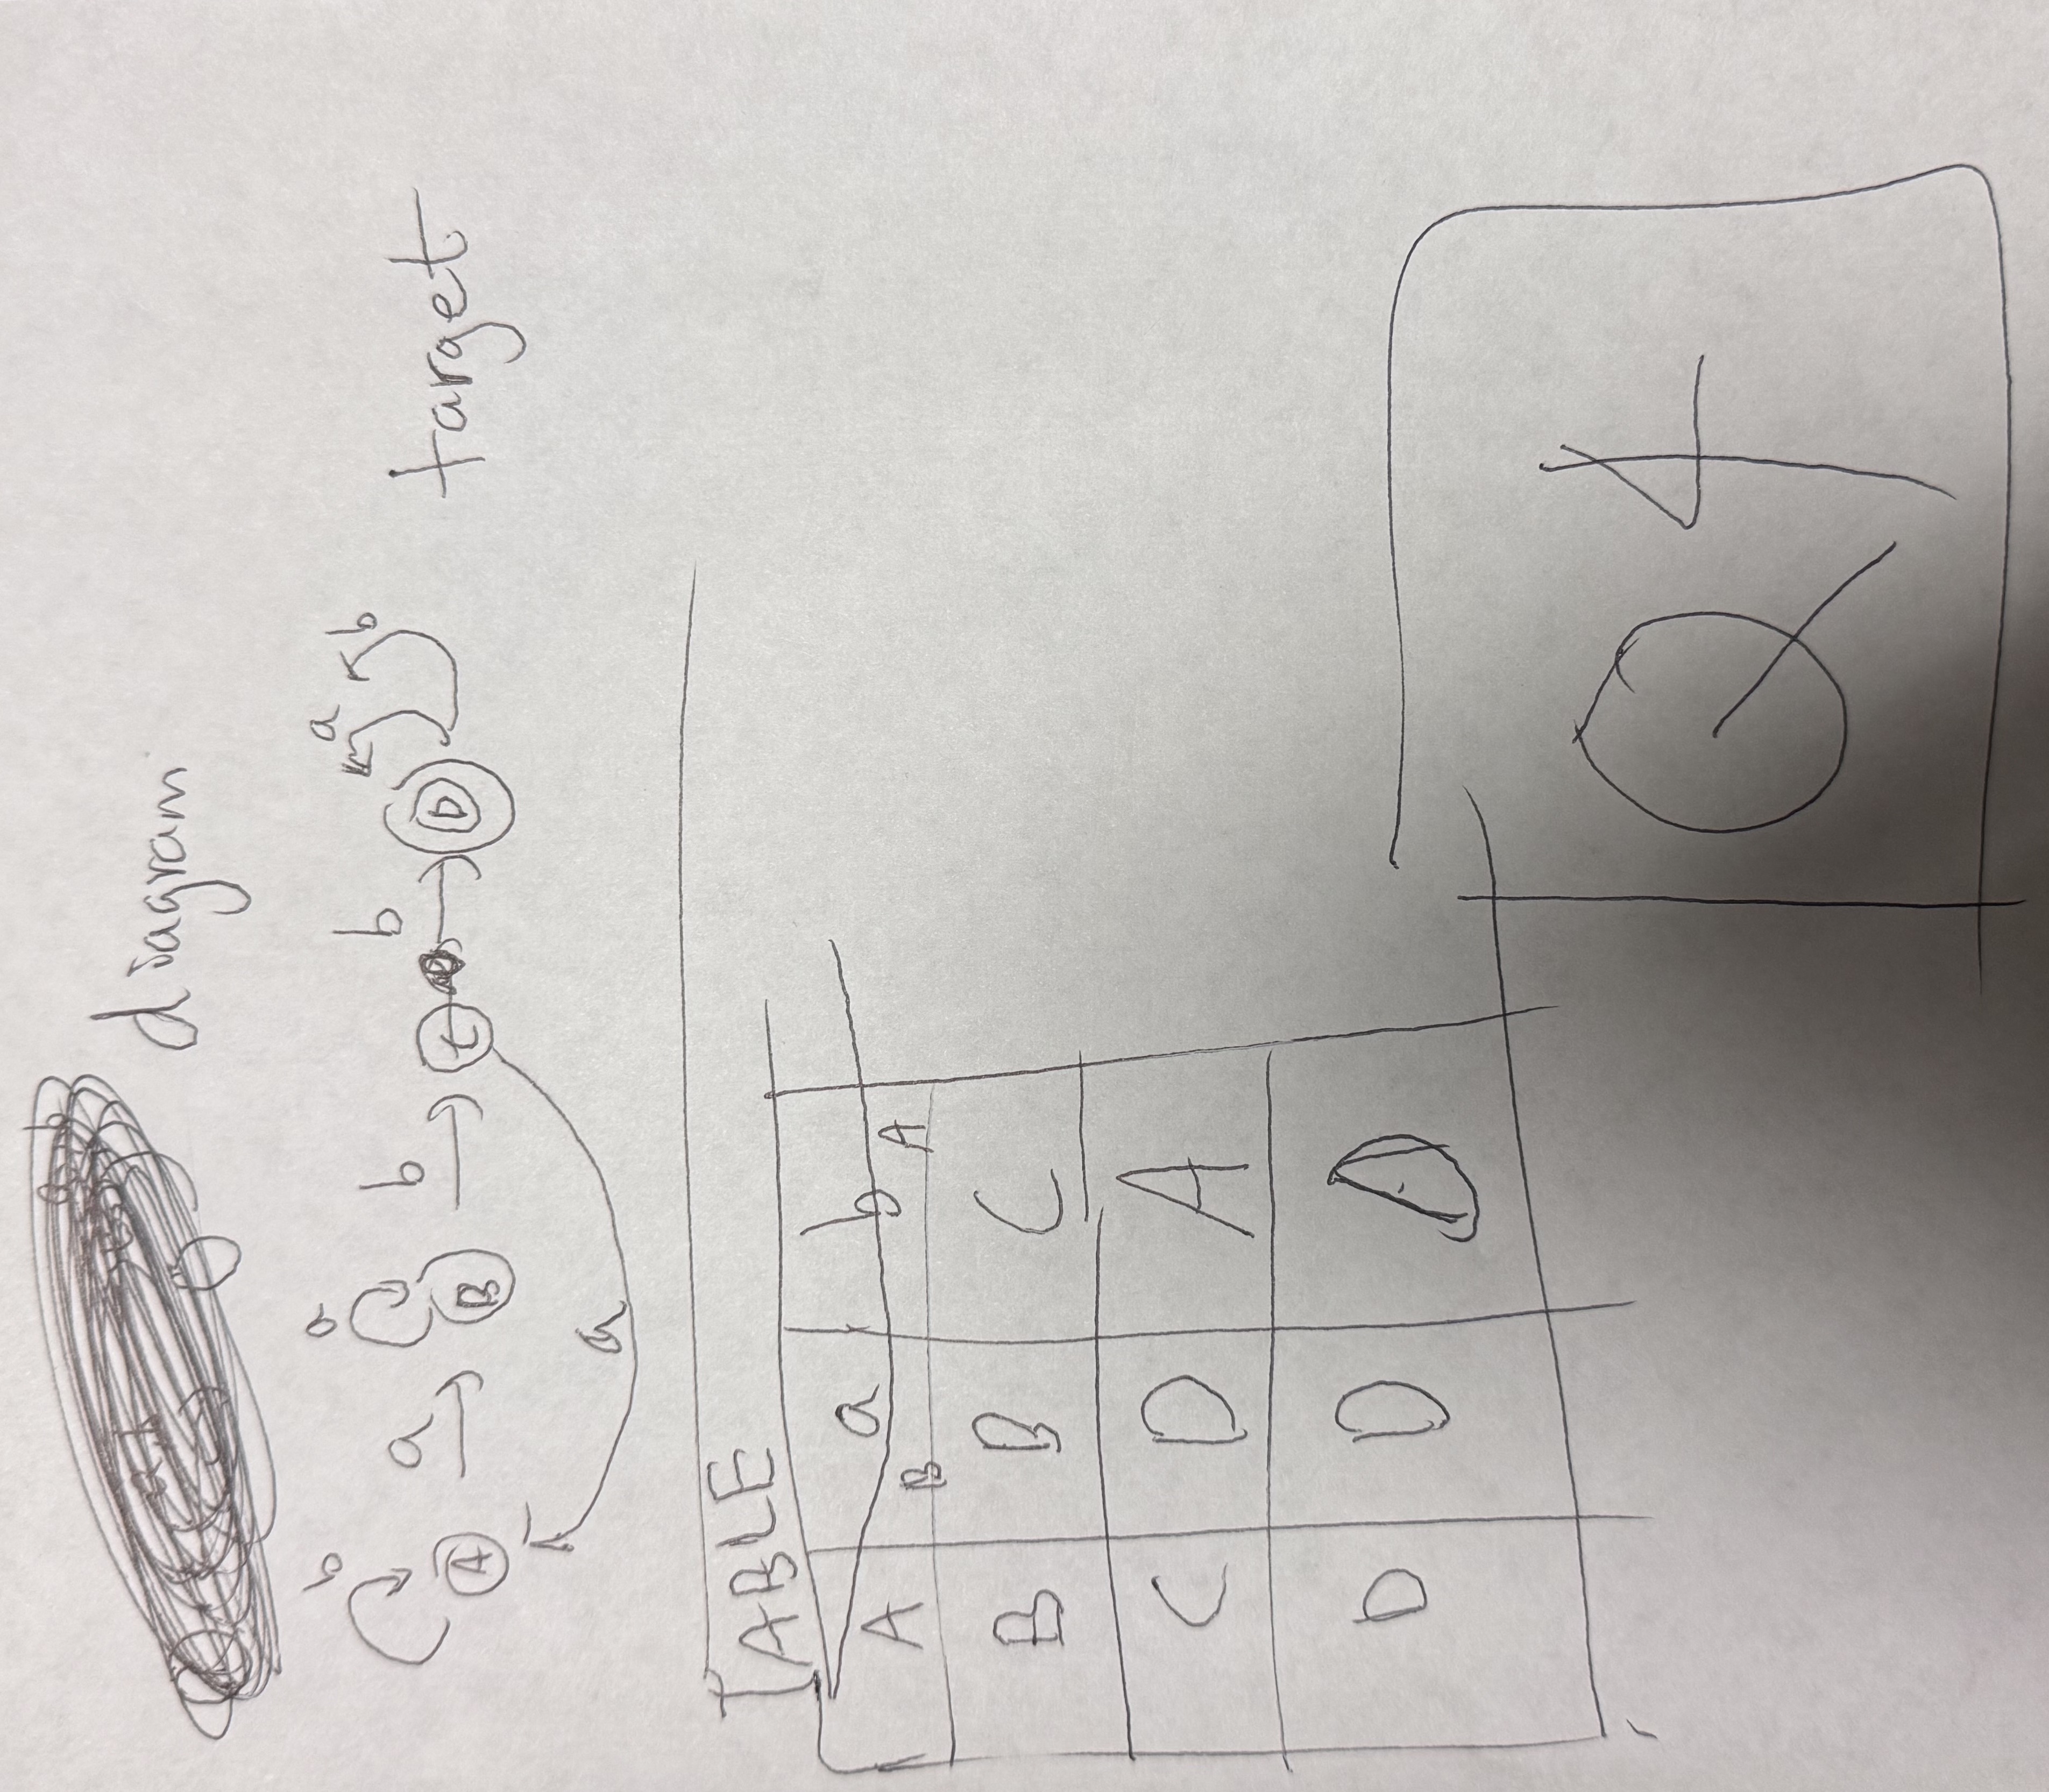 diagram
b a a b
a b b target
A B C D
a
TABLE
a b
A B A
B B C
C D A
D D D
Q4